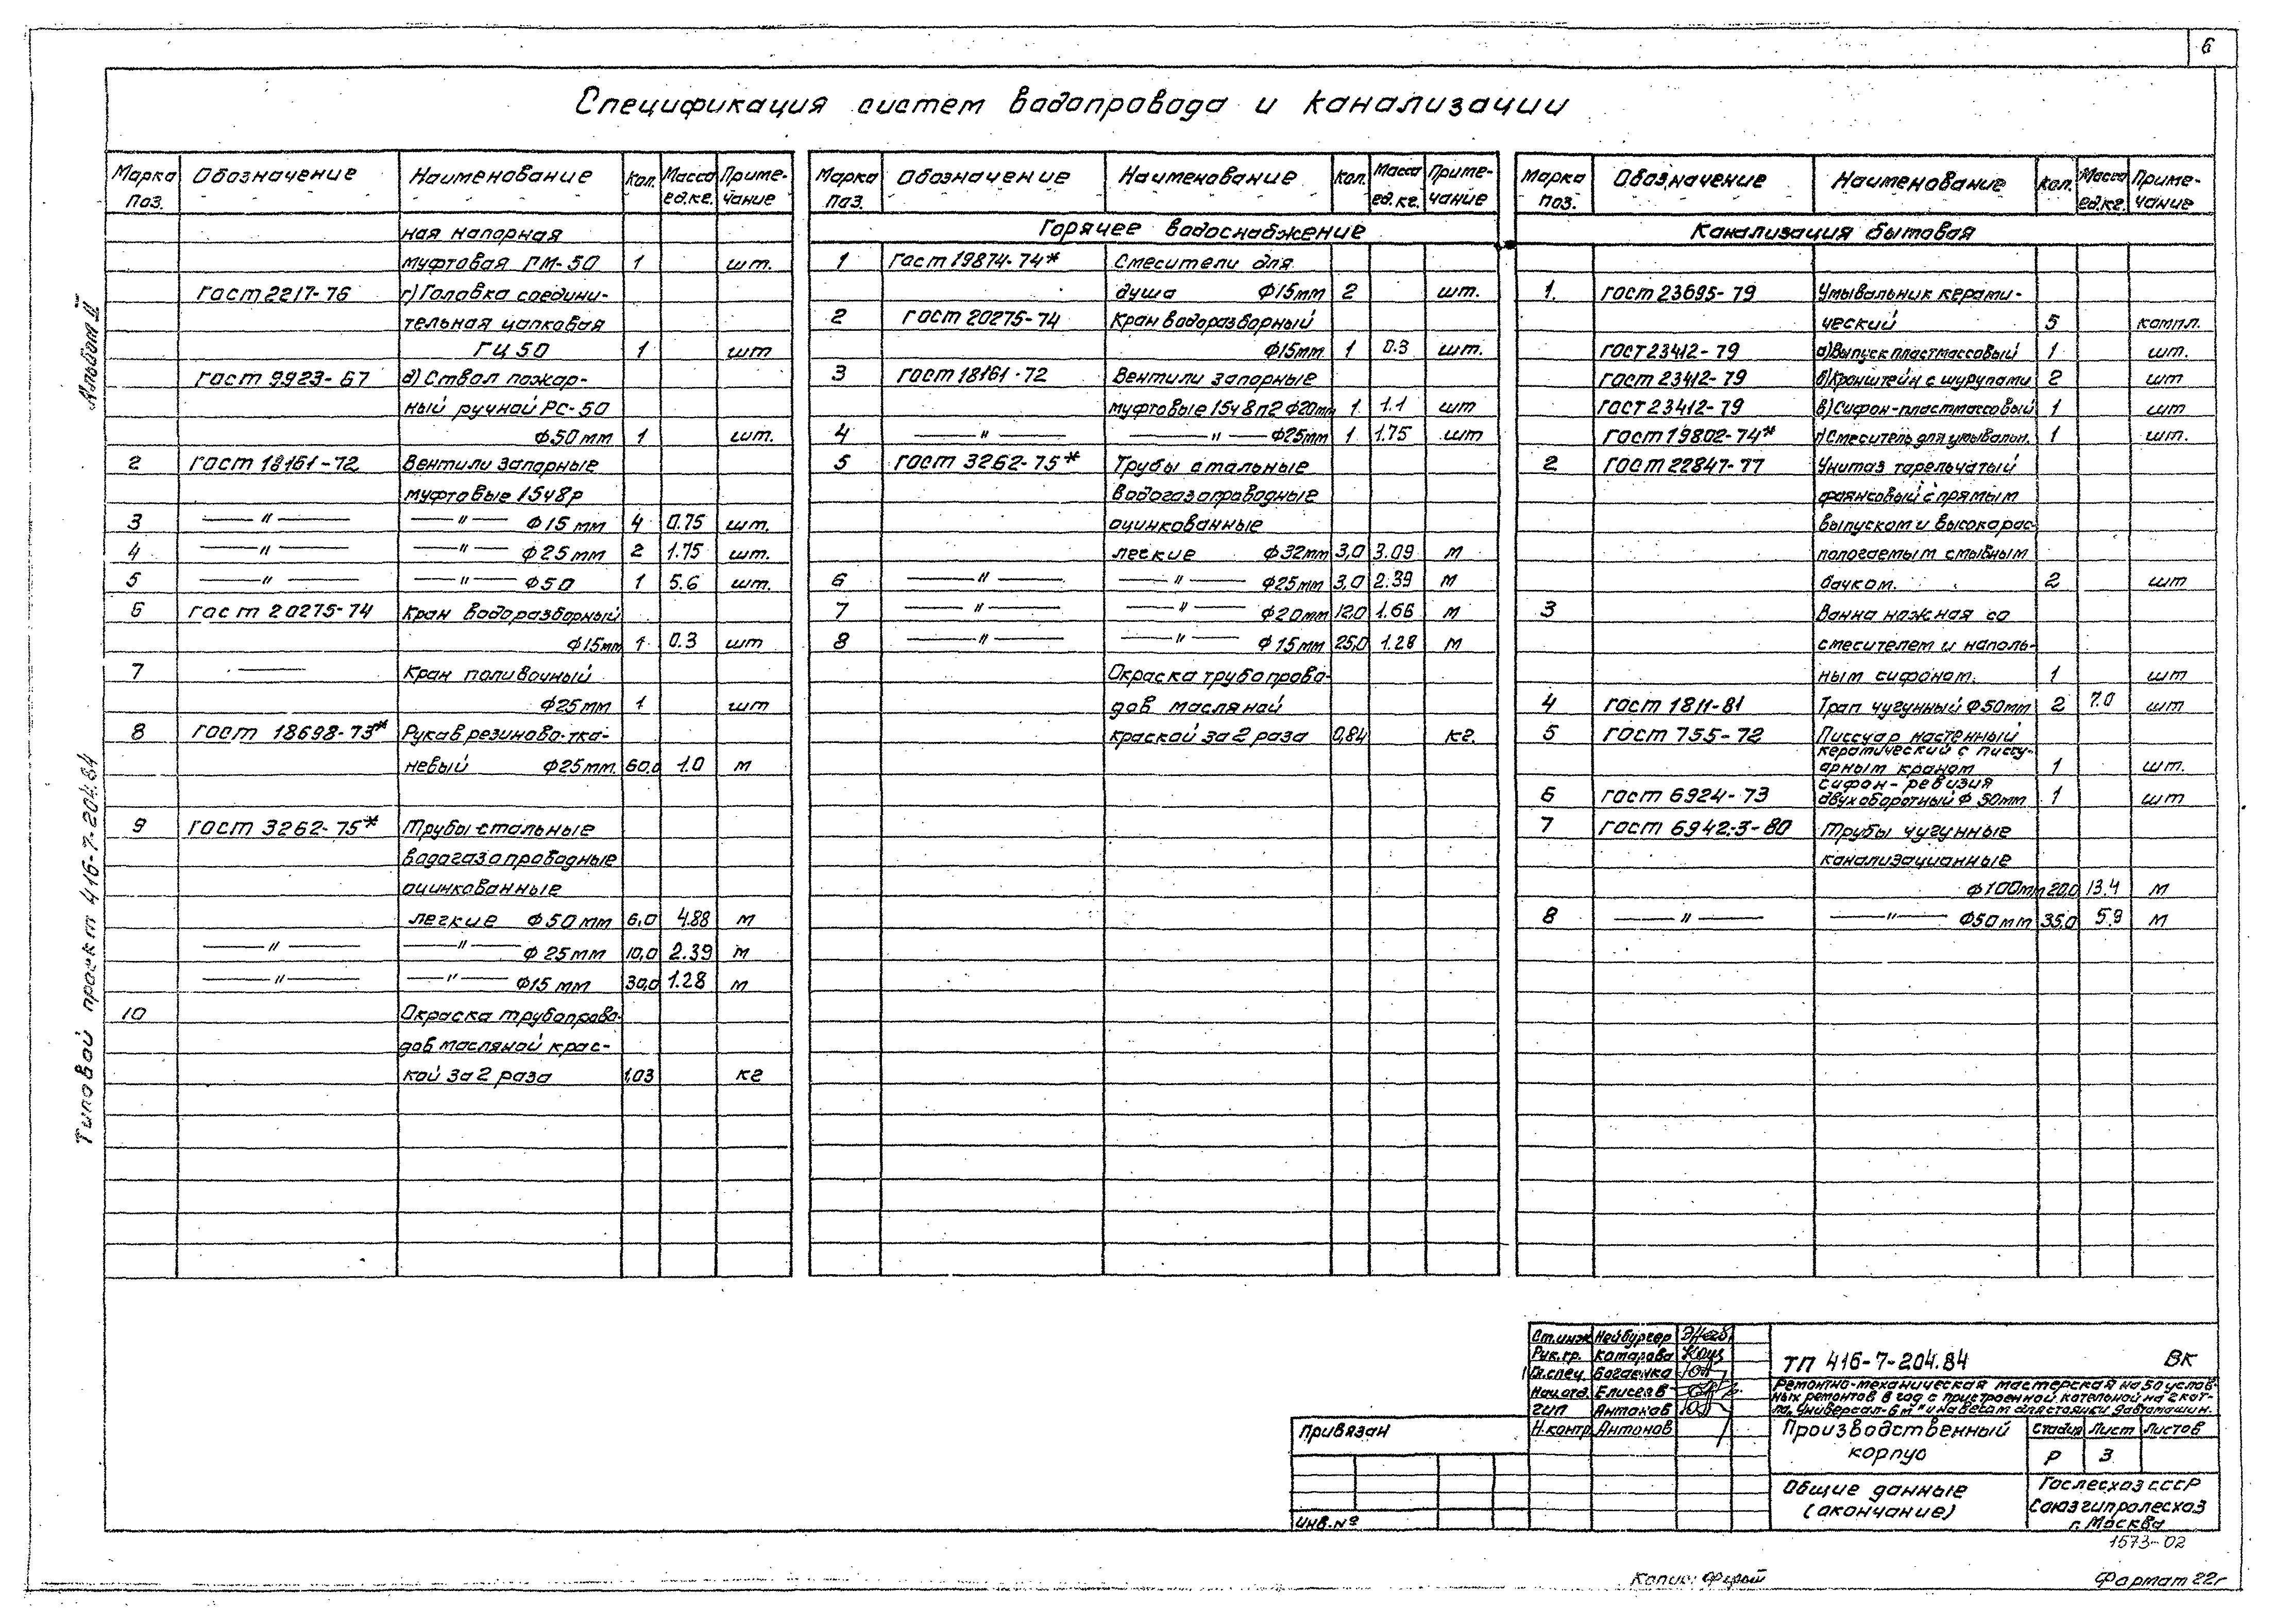 6
Спецификация систем водопровода и канализации
Альбом II
Типовой проект 416-7-204.84
Марка поз. Обозначение Наименование Кол. Масса ед.кг. Приме-чание
ная напорная
муфтовая ГМ-50 1 шт.
ГОСТ 2217-76 г) Головка соедини-
тельная цапковая
ГЦ 50 1 шт
ГОСТ 9923-67 д) Ствол пожар-
ный ручной РС-50
Ф50мм 1 шт.
2 ГОСТ 18161-72 Вентили запорные
муфтовые 15ч8р
3 —〃— —〃— Ф15мм 4 0.75 шт.
4 —〃— —〃— Ф25мм 2 1.75 шт.
5 —〃— —〃— Ф50 1 5.6 шт.
6 ГОСТ 20275-74 Кран водоразборный
Ф15мм 1 0.3 шт
7 — Кран поливочный
Ф25мм 1 шт
8 ГОСТ 18698-73* Рукав резиново-тка-
невый Ф25мм 60,0 1.0 м
9 ГОСТ 3262-75* Трубы стальные
водогазопроводные
оцинкованные
легкие Ф50мм 6,0 4.88 м
—〃— —〃— Ф25мм 10,0 2.39 м
—〃— —〃— Ф15мм 30,0 1.28 м
10 Окраска трубопрово-
дов масляной крас-
кой за 2 раза 1,03 кг
Марка поз. Обозначение Наименование Кол. Масса ед.кг. Приме-чание
Горячее водоснабжение
1 ГОСТ 19874-74* Смесители для
душа Ф15мм 2 шт.
2 ГОСТ 20275-74 Кран водоразборный
Ф15мм 1 0.3 шт.
3 ГОСТ 18161-72 Вентили запорные
муфтовые 15ч8п2 Ф20мм 1 1.1 шт
4 —〃— —〃— Ф25мм 1 1.75 шт
5 ГОСТ 3262-75* Трубы стальные
водогазопроводные
оцинкованные
легкие Ф32мм 3,0 3.09 м
6 —〃— —〃— Ф25мм 3,0 2.39 м
7 —〃— —〃— Ф20мм 12,0 1.66 м
8 —〃— —〃— Ф15мм 25,0 1.28 м
Окраска трубопрово-
дов масляной
краской за 2 раза 0,84 кг.
Марка поз. Обозначение Наименование Кол. Масса ед.кг. Приме-чание
Канализация бытовая
1. ГОСТ 23695-79 Умывальник керами-
ческий 5 компл.
ГОСТ 23412-79 а) Выпуск пластмассовый 1 шт.
ГОСТ 23412-79 б) Кронштейн с шурупами 2 шт
ГОСТ 23412-79 в) Сифон-пластмассовый 1 шт
ГОСТ 19802-74* г) Смеситель для умывальн. 1 шт.
2 ГОСТ 22847-77 Унитаз тарельчатый
фаянсовый с прямым
выпуском и высокорас-
пологаемым смывным
бачком. 2 шт
3 Ванна ножная со
смесителем и наполь-
ным сифоном. 1 шт
4 ГОСТ 1811-81 Трап чугунный Ф50мм 2 7.0 шт
5 ГОСТ 755-72 Писсуар настенный
керамический с писсу-
арным краном 1 шт.
6 ГОСТ 6924-73 сифон-ревизия
двухоборотный Ф 50мм 1 шт
7 ГОСТ 6942.3-80 Трубы чугунные
канализационные
Ф100мм 20,0 13.4 м
8 —〃— —〃— Ф50мм 35,0 5.9 м
Ст.инж Нейбургер
Рук.гр. Комарова
Гл.спец. Богаенко
Нач.отд. Елисеев
ГИП Антонов
Н.контр Антонов
Привязан
Инв.№
ТП 416-7-204.84 ВК
Ремонтно-механическая мастерская на 50 услов-
ных ремонтов в год с пристроенной котельной на 2 кот-
ла „Универсал-6м" и навесом для стоянки автомашин.
Производственный
корпус
Стадия Лист Листов
Р 3
Общие данные
(окончание)
Гослесхоз СССР
Союзгипролесхоз
г. Москва
1573-02
Формат 22г